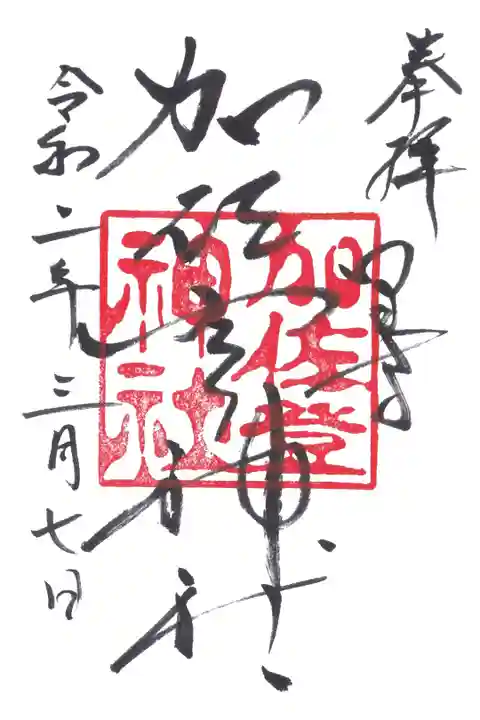 奉拝
加佐登神社
加佐登
神社
令和二年三月七日